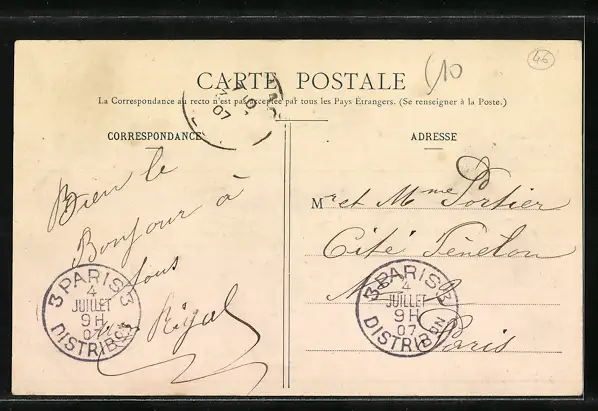 46
10
CARTE POSTALE
La Correspondance au recto n'est pas acceptée par tous les Pays Etrangers. (Se renseigner à la Poste.)
07
CORRESPONDANCE
Bien le
Bonjour à
tous
Rigal
3 PARIS 3
4
JUILLET
9H
07
DISTRIBON
ADRESSE
Mr et Mme Portier
Cité Fénelon
Paris
3 PARIS 3
4
JUILLET
9H
07
DISTRIBON